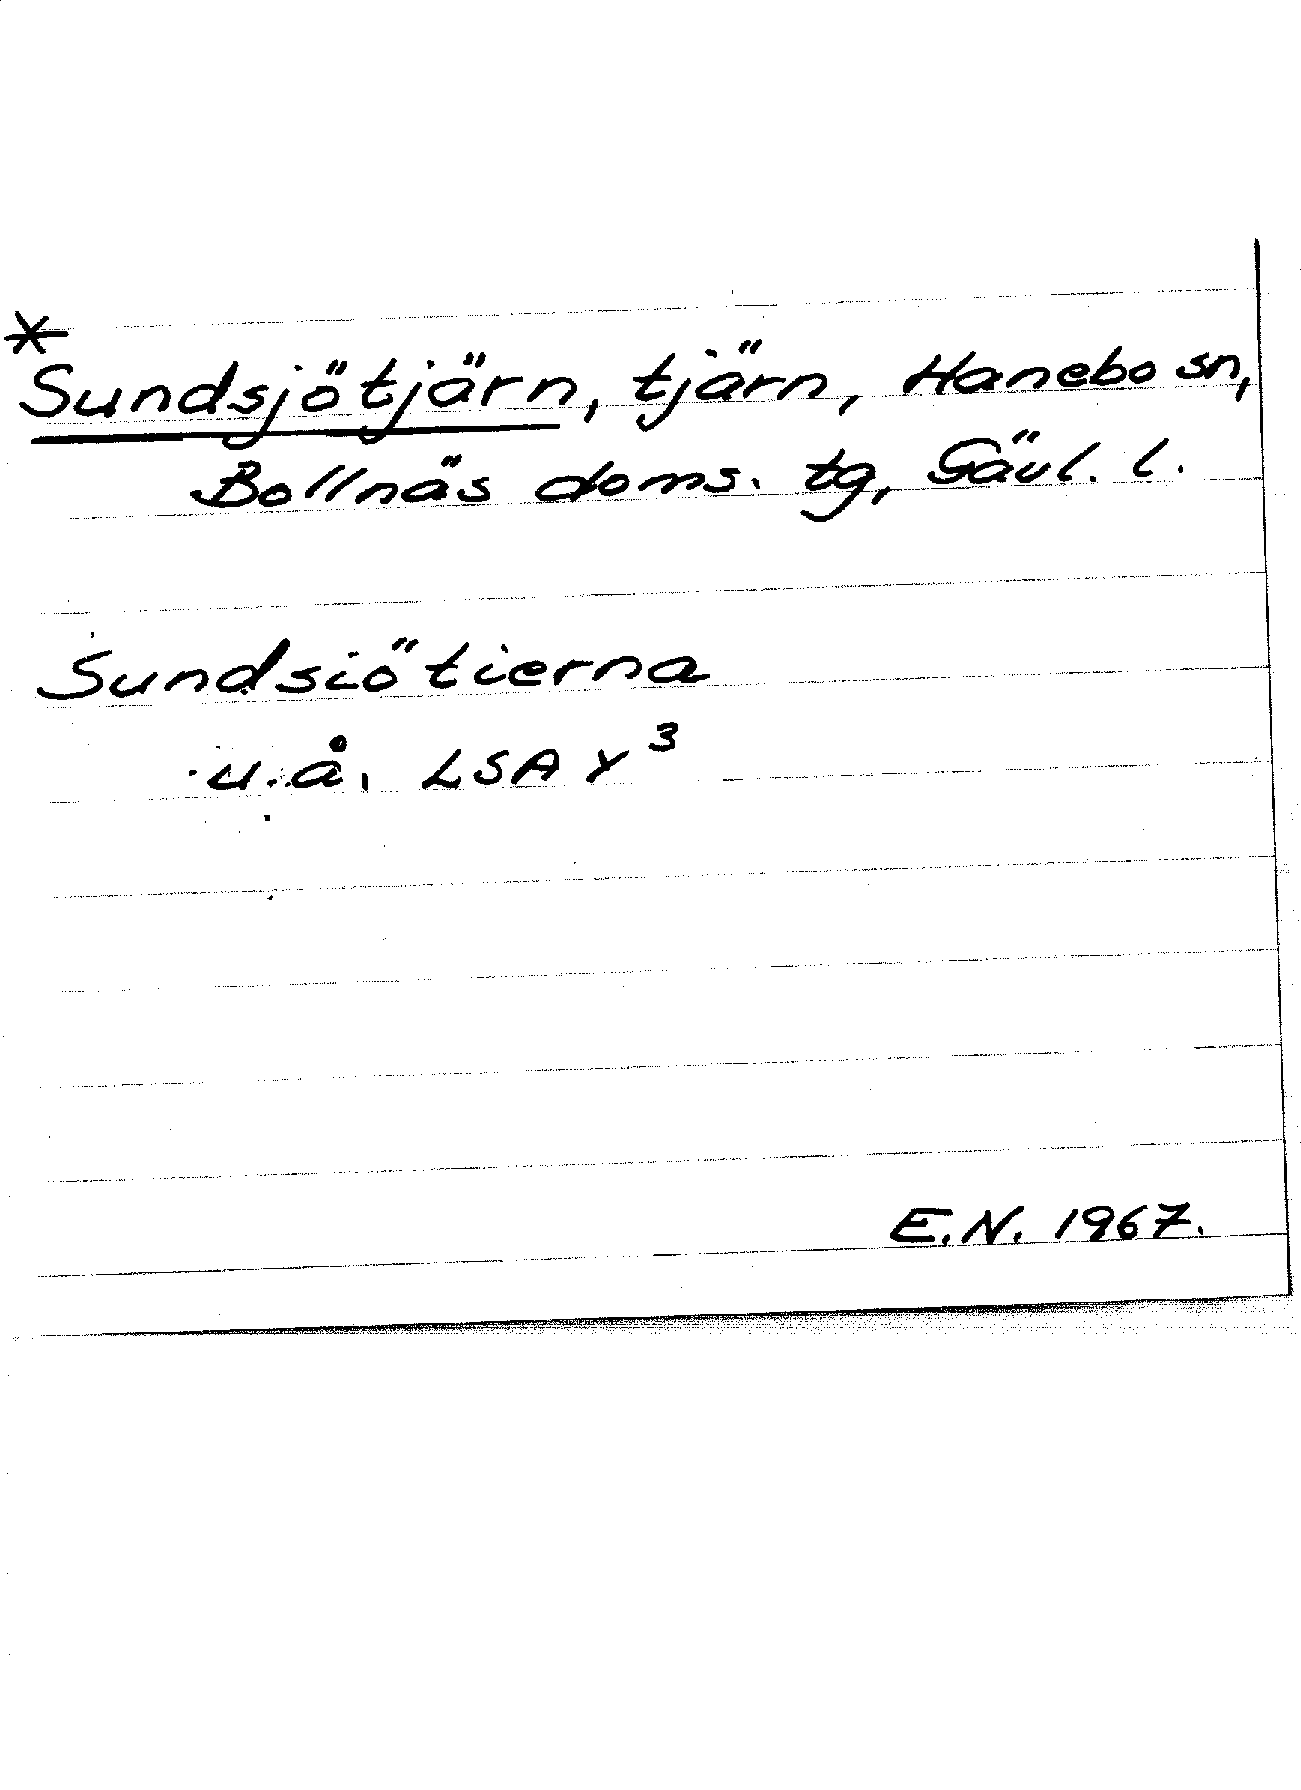 *
Sundsjötjärn, tjärn, Hanebo sn,
Bollnäs doms. tg, Gävl. l.
Sundsiötierna
u.å. LSA X³
E.N. 1967.